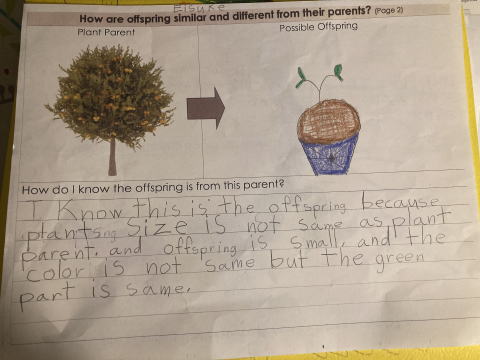 Eisuke
How are offspring similar and different from their parents? (Page 2)
Plant Parent
Possible Offspring
How do I know the offspring is from this parent?
I Know this is the offspring because
plantsng size is not same as plant
parent. and offspring is small, and the
color is not same but the green
part is same.